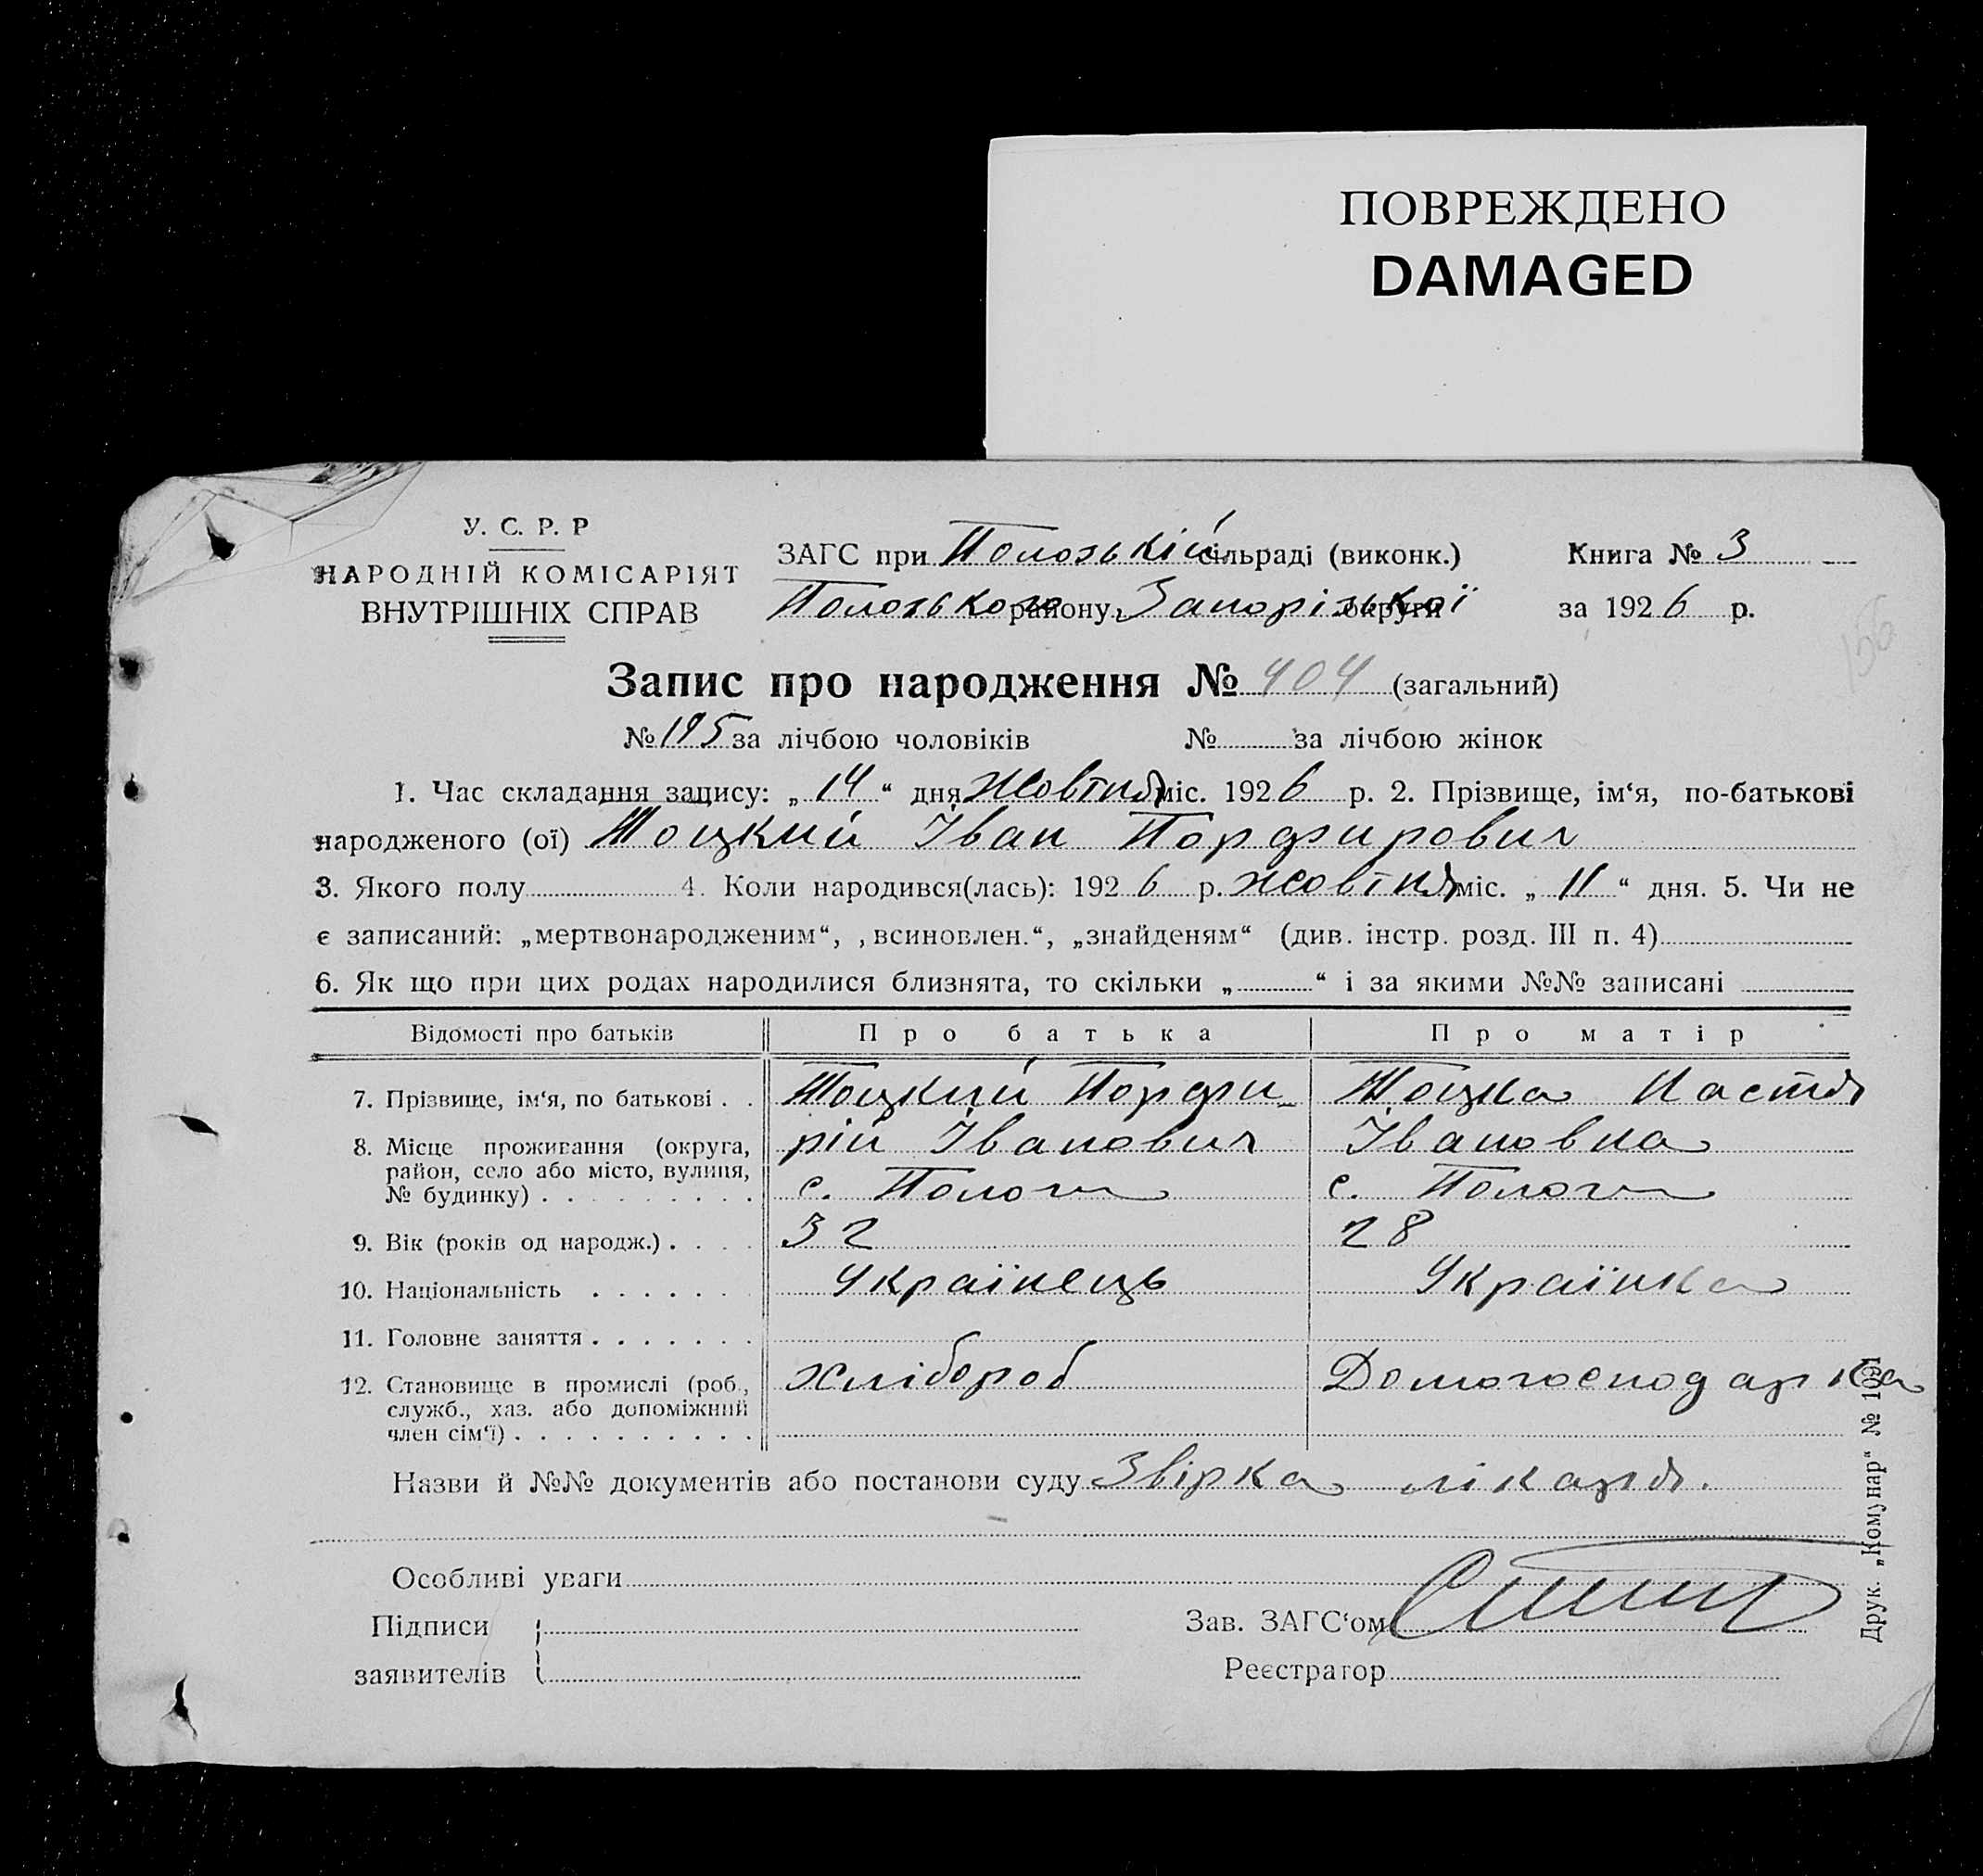 ПОВРЕЖДЕНО
DAMAGED
У. С. Р. Р
НАРОДНІЙ КОМІСАРІЯТ
ВНУТРІШНІХ СПРАВ
ЗАГС при Пологській сільраді (виконк.)
Пологського району, Запорізької округи
Книга № 3
за 1926 р.
156
Запис про народження № 404 (загальний)
№ 195 за лічбою чоловіків № за лічбою жінок
1. Час складання запису: „ 14 “ дня Жовтня міс. 1926 р. 2. Прізвище, ім‘я, по-батькові
народженого (ої) Тоцкий Іван Порфирович
3. Якого полу 4. Коли народився(лась): 1926 р. жовтня міс. „ 11 “ дня. 5. Чи не
є записаний: „мертвонародженим“, ‚всиновлен.“, „знайденям“ (див. інстр. розд. III п. 4)
6. Як що при цих родах народилися близнята, то скільки „ “ і за якими №№ записані
Відомості про батьків Про батька Про матір
7. Прізвище, ім‘я, по батькові . . Тоцкий Порфи- Тоцка Настя
8. Місце проживання (округа, рій Іванович Івановна
район, село або місто, вулиця,
№ будинку) . . . . . . . . . с. Пологи с. Пологи
9. Вік (років од народж.) . . . . 32 28
10. Національність . . . . . . . Українець Українка
11. Головне заняття . . . . . . .
12. Становище в промислі (роб., хлібороб Домогосподарка
служб., хаз. або допоміжний
член сім‘ї) . . . . . . . . . .
Назви й №№ документів або постанови суду Звірка лікаря.
Особливі уваги
Підписи
заявителів
Зав. ЗАГС‘ом
Реєстратор
Друк. „Комунар“ № 1091